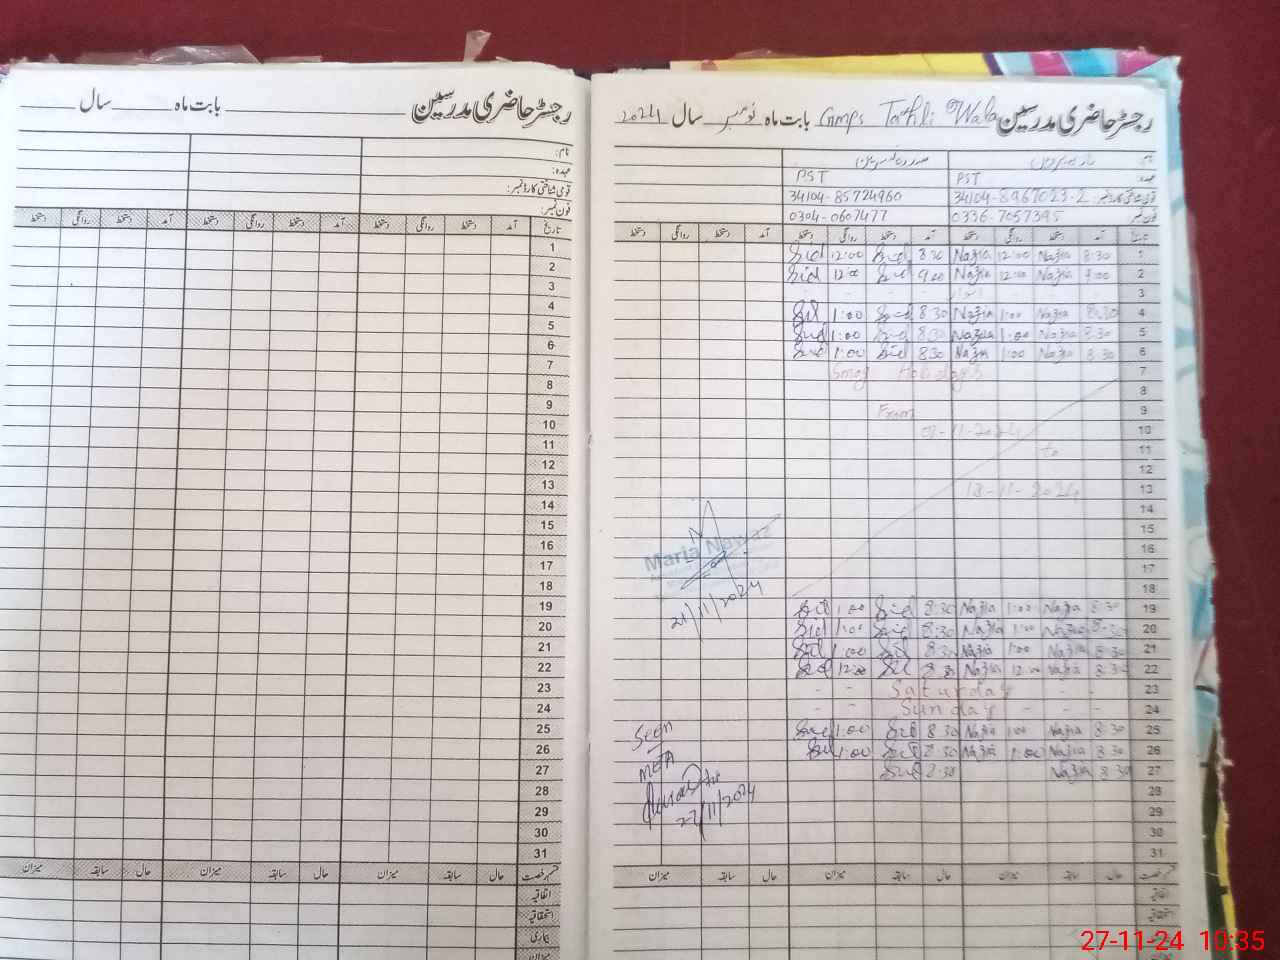 رجسٹر حاضری مدرسین ــــــ بابت ماہ ــــــ سال ــــــ
نام:
عہدہ:
قومی شناختی کارڈ نمبر:
فون نمبر:
تاریخ آمد دستخط روانگی دستخط آمد دستخط روانگی دستخط آمد دستخط روانگی دستخط
1
2
3
4
5
6
7
8
9
10
11
12
13
14
15
16
17
18
19
20
21
22
23
24
25
26
27
28
29
30
31
قسم رخصت حال سابقہ میزان حال سابقہ میزان حال سابقہ میزان
اتفاقیہ
استحقاقیہ
بیماری
میزان
رجسٹر حاضری مدرسین Gmps Tahli Wala بابت ماہ نومبر سال 2024
نام:
عہدہ PST PST
قومی شناختی کارڈ نمبر: 34104-8967023-2 34104-85724960
فون نمبر 0336-7057395 0304-0607477
تاریخ آمد دستخط روانگی دستخط آمد دستخط روانگی دستخط آمد دستخط روانگی دستخط
1 8:30 Nazia 12:00 Nazia 8:30 Sid 12:00 Sid
2 9:00 Nazia 12:00 Nazia 9:00 Sid 12:00 Sid
3 اتوار
4 8:30 Nazia 1:00 Nazia 8:30 Sid 1:00 Sid
5 8:30 Nazia 1:00 Nazia 8:30 Sid 1:00 Sid
6 8:30 Nazia 1:00 Nazia 8:30 Sid 1:00 Sid
7 Smog Holidays
8
9 From
10 07-11-2024
11 to
12
13 18-11-2024
14
15
16
17
18
19 8:30 Nazia 1:00 Nazia 8:30 Sid 1:00 Sid
20 8:30 Nazia 1:00 Nazia 8:30 Sid 1:00 Sid
21 8:30 Nazia 1:00 Nazia 8:30 Sid 1:00 Sid
22 8:30 Nazia 12:00 Nazia 8:30 Sid 12:00 Sid
23 Saturday
24 Sunday
25 8:30 Nazia 1:00 Nazia 8:30 Sid 1:00 Sid
26 8:30 Nazia 1:00 Nazia 8:30 Sid 1:00 Sid
27 8:30 Nazia 8:30 Sid
28
29
30
31
Maria Nawaz
21/11/2024
Seen
MEA
27/11/2024
قسم رخصت حال سابقہ میزان حال سابقہ میزان حال سابقہ میزان
اتفاقیہ
استحقاقیہ
بیماری
27-11-24 10:35